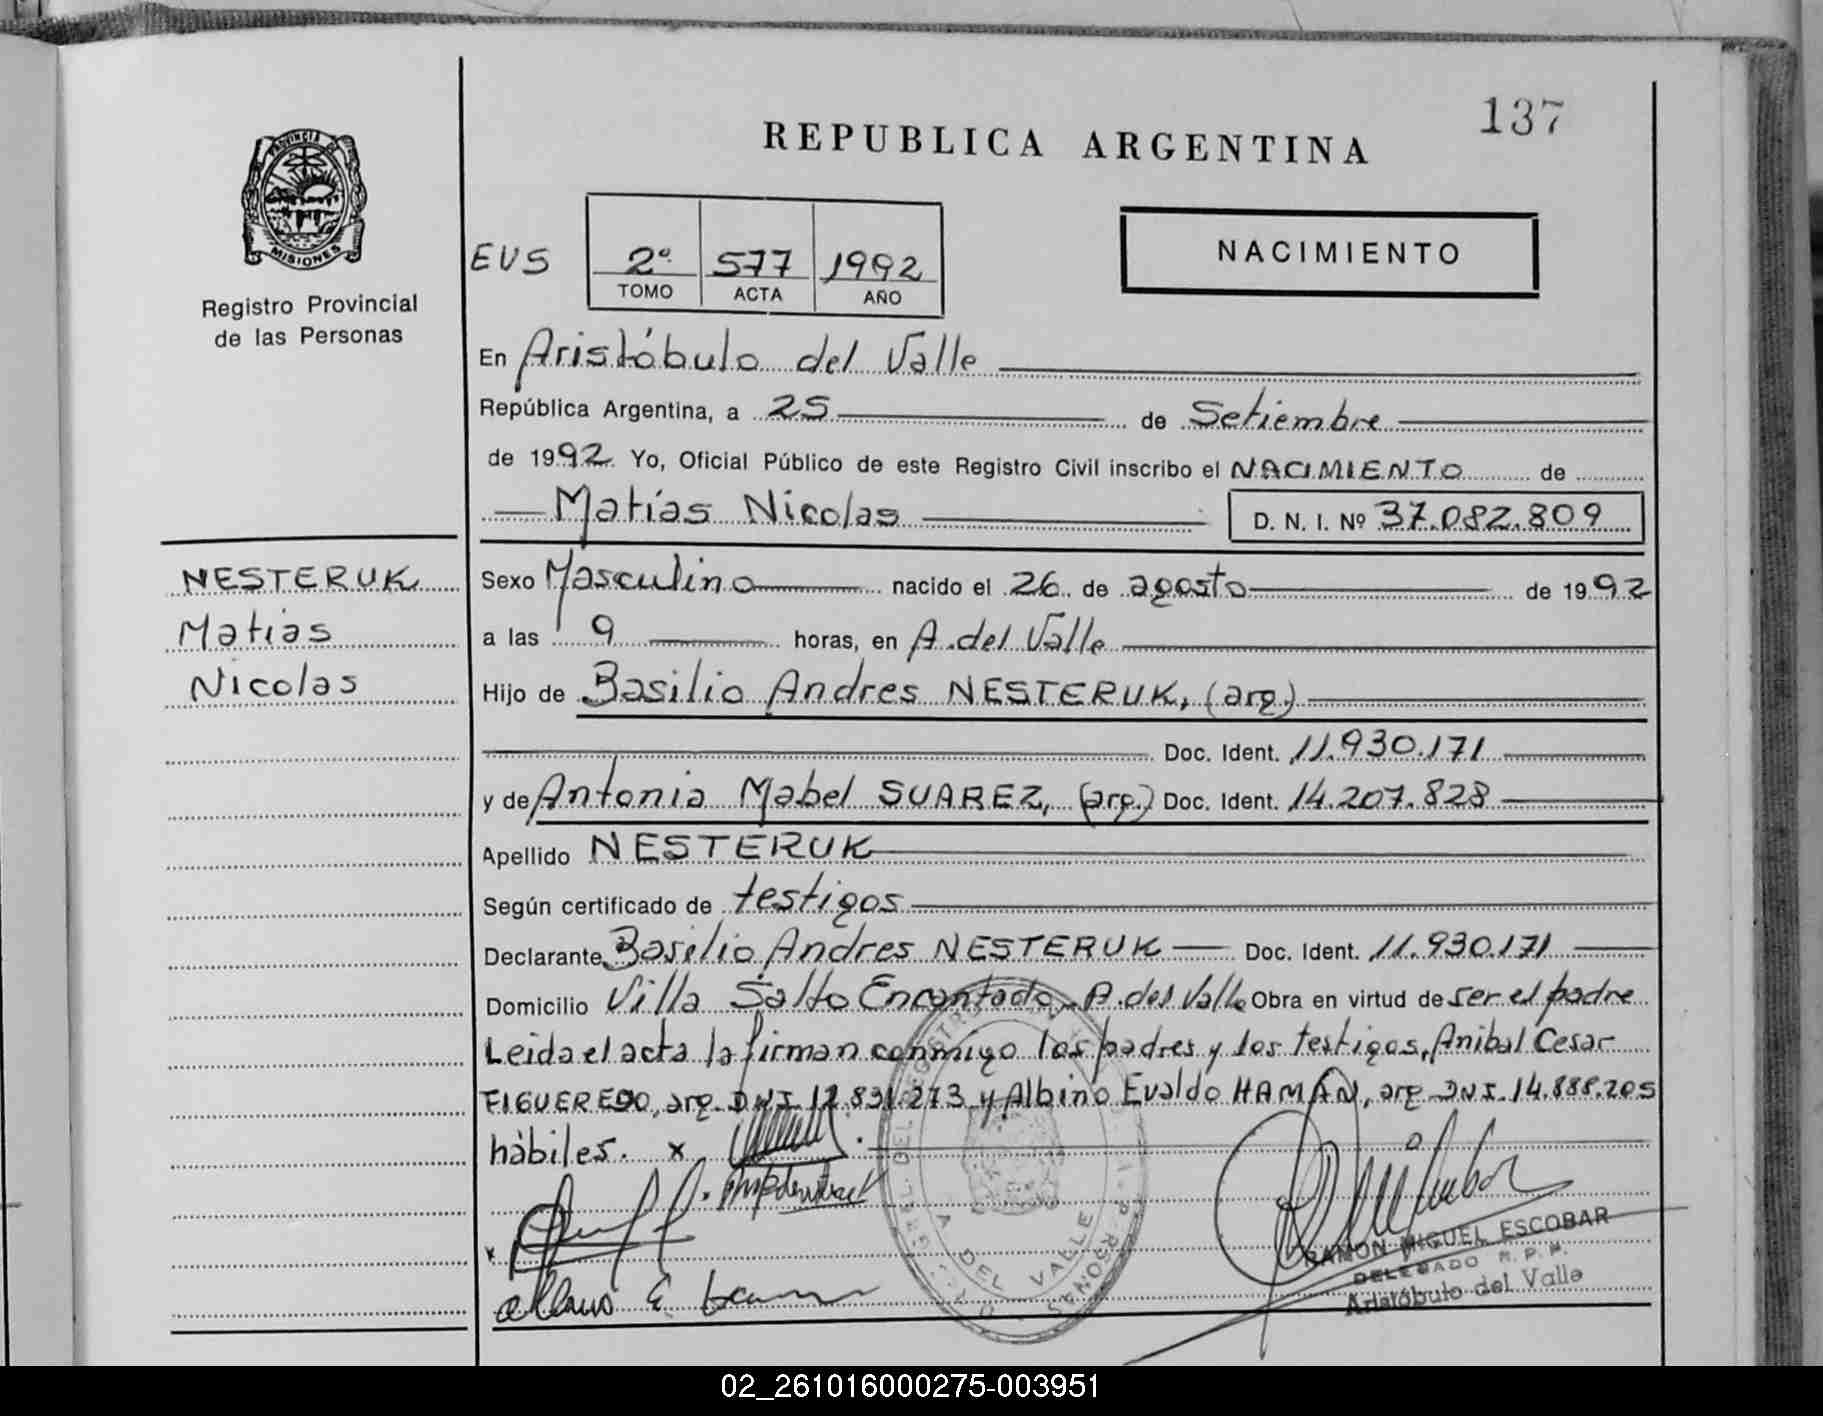 137
REPUBLICA ARGENTINA
PROVINCIA DE
MISIONES
Registro Provincial
de las Personas
EVS
2º 577 1992
TOMO ACTA AÑO
NACIMIENTO
En Aristóbulo del Valle
República Argentina, a 25 de Setiembre
de 1992 Yo, Oficial Público de este Registro Civil inscribo el NACIMIENTO de
Matías Nicolas D. N. I. Nº 37.082.809
NESTERUK
Matias
Nicolas
Sexo Masculino nacido el 26 de agosto de 1992
a las 9 horas, en A. del Valle
Hijo de Basilio Andres NESTERUK, (arg.)
Doc. Ident. 11.930.171
y de Antonia Mabel SUAREZ, (arg.) Doc. Ident. 14.207.828
Apellido NESTERUK
Según certificado de testigos
Declarante Basilio Andres NESTERUK Doc. Ident. 11.930.171
Domicilio Villa Salto Encantado - A. del Valle Obra en virtud de ser el padre
Leida el acta la firman conmigo los padres y los testigos, Anibal Cesar
FIGUEREDO, arg. DNI. 12.831.273 y Albino Evaldo HAMAN, arg. DNI. 14.888.205
hàbiles. x
x
A DEL VALLE
RAMON MIGUEL ESCOBAR
DELEGADO R. P. P.
Aristóbulo del Valle
02_261016000275-003951